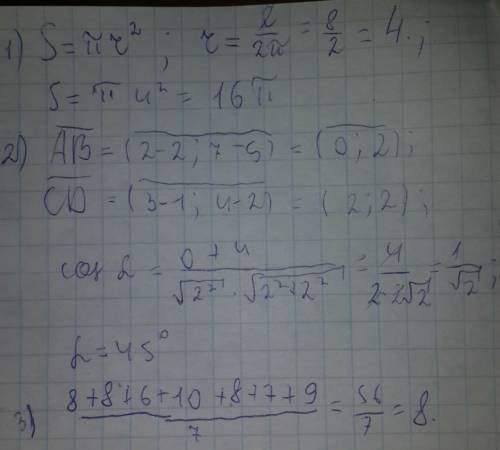 1) S = πr² ; r = ℓ/2π = 8/2 = 4.;
S = π 4² = 16π
2) AB = (2-2; 7-5) = (0; 2);
CD = (3-1; 4-2) = (2; 2);
cos α = 0+4/√2² · √2²+2² = 4/2·2√2 = 1/√2;
α = 45°
3) 8+8+6+10+8+7+9/7 = 56/7 = 8.